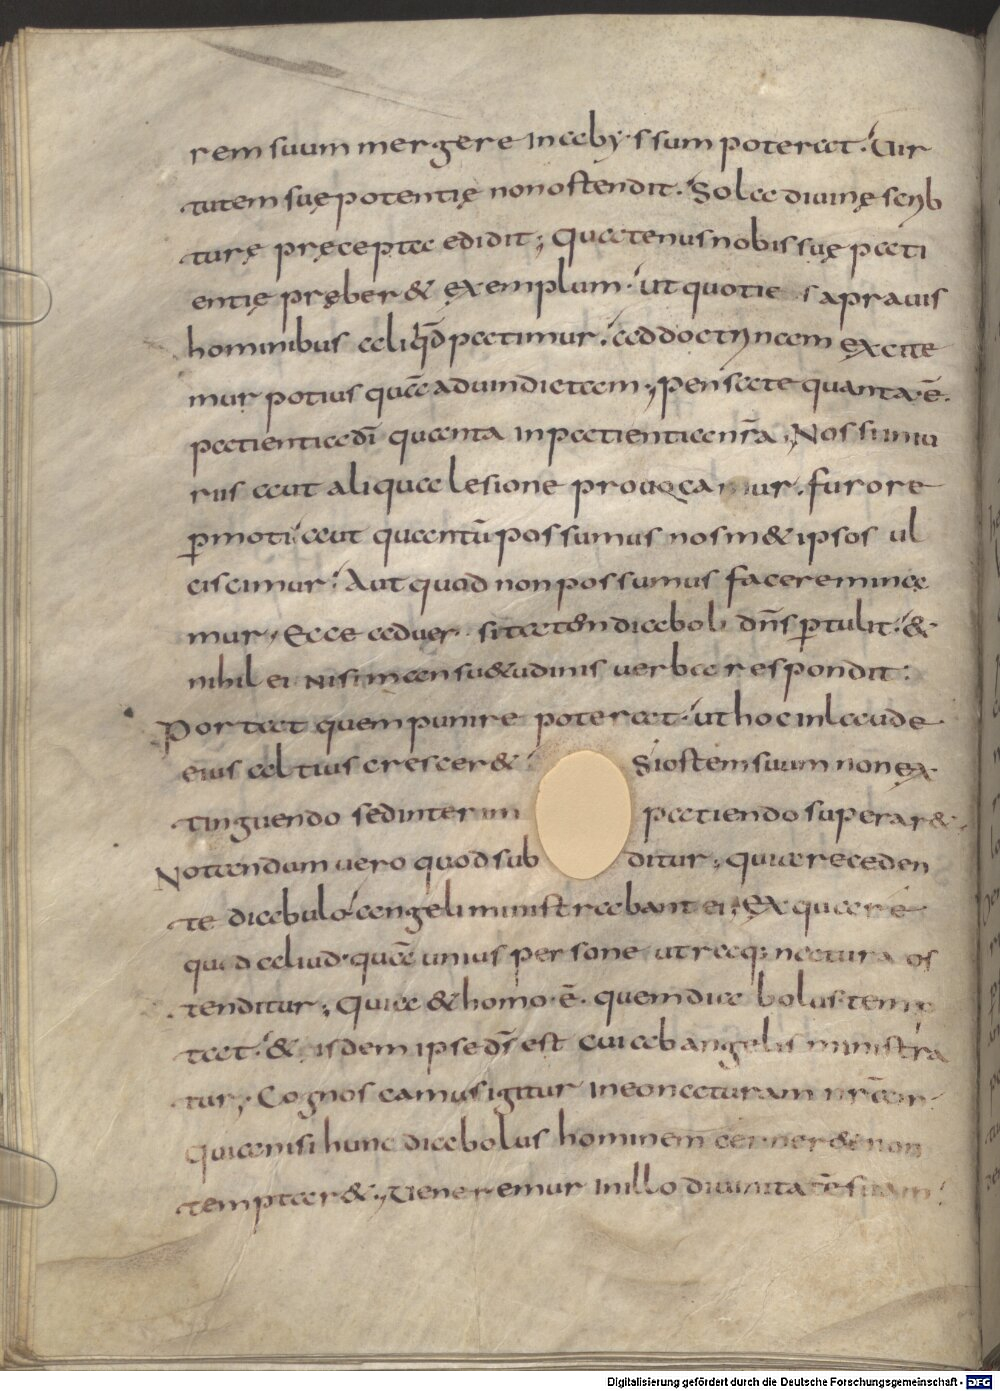 rem suum mergere in aby·ssum poterat· Vir
tutem suę potentię non ostendit. Sola diuinę scrib
turę pręcepta edidit; Quatenus nobis suę pati
entię pręber& exemplum· ut quoties a prauis
hominibus aliqđ patimur. ad doctrinam excite
mur potius quā ad uindictam; Pensate quanta ē.
patientia dī quanta inpatientia nr̄a; Nos si iniu
riis aut aliqua lesione prouocamur. furore
ꝑmoti aut quantū possumus nosm&ipsos ul
ciscimur· Aut quod non possumus facere mina
mur; Ecce aduer sitatem diaboli dn̄s ꝑtulit· &
nihil ei nisi mansu&udinis uerba respondit:
Portat quem punire poterat· ut hoc in laude
eius altius crescer& Si ostem suum non ex
tinguendo sed interim patiendo superar&.
Notandum uero quod sub ditur; quia receden
te diabulo angeli ministrabant ei; Ex qua re
quid aliud· quā unius persone utraq; natura os
tenditur; Quia & homo· ē· quem diabolus temp
tat· & isdem ipse ds̄ est cui ab angelis ministra
tur; Cognoscamus igitur in eo naturam nr̄am·
Quia nisi hunc diabolus hominem cerner& non
temptar&; Veneremur in illo diuinitatē suam
Digitalisierung gefördert durch die Deutsche Forschungsgemeinschaft - DFG